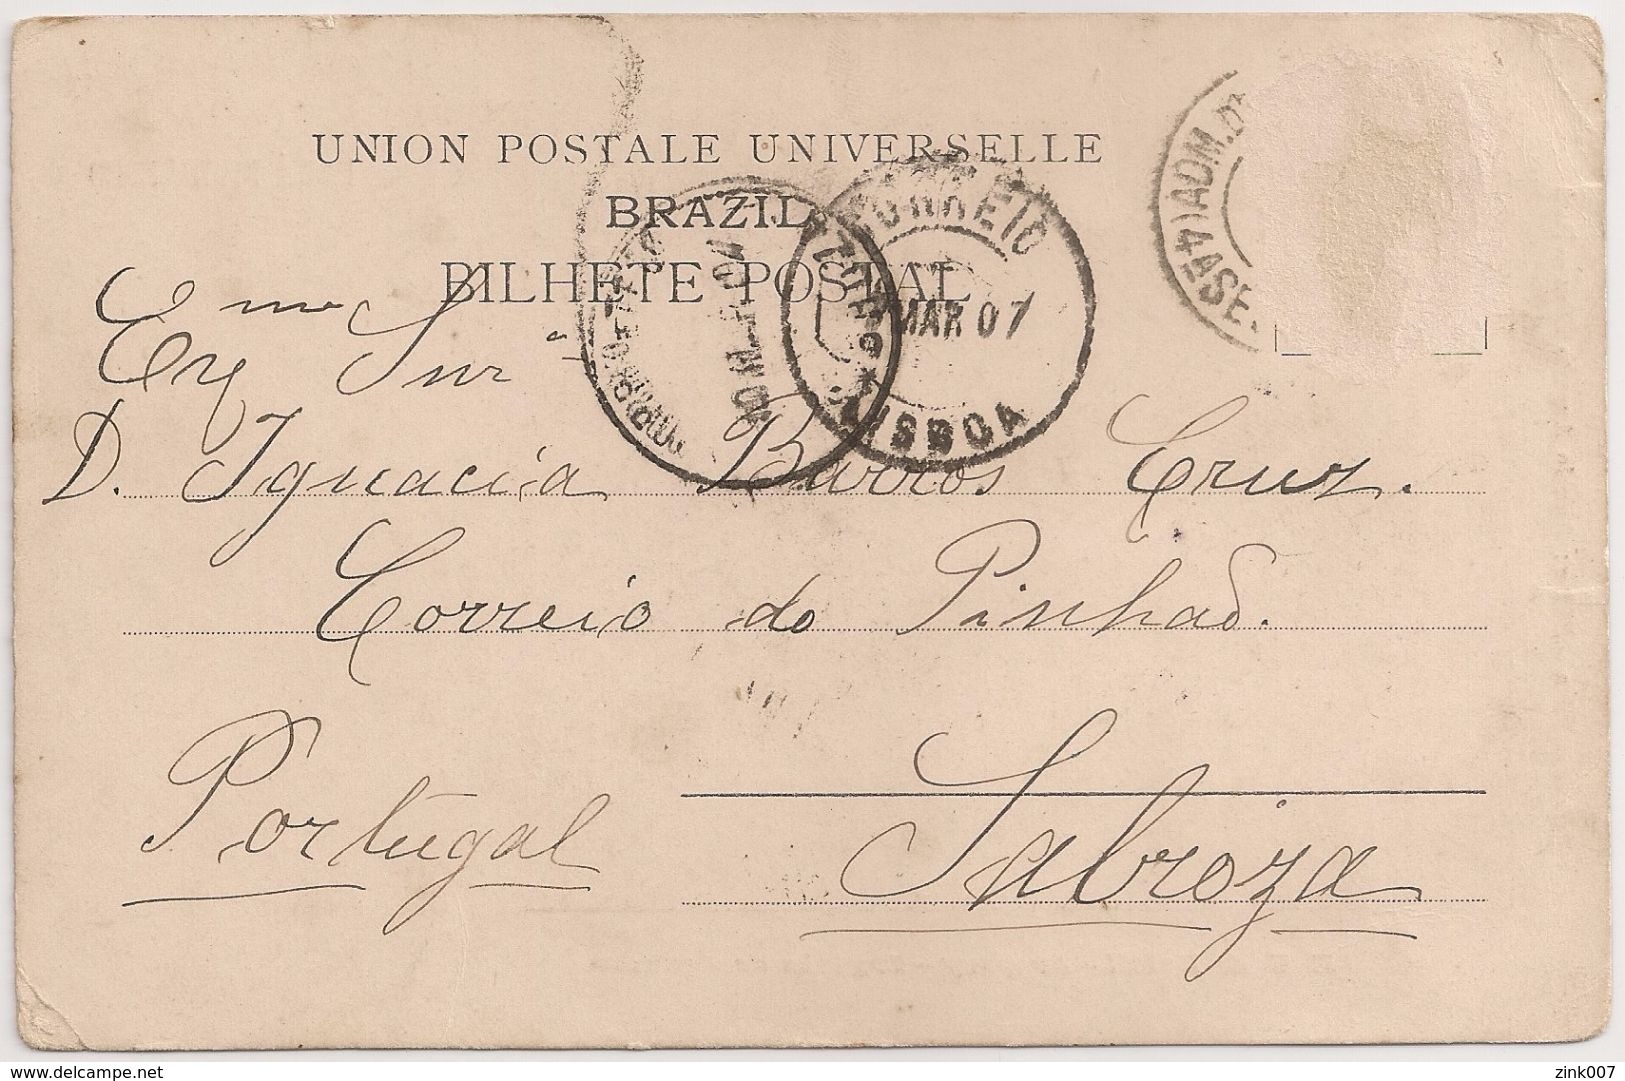 UNION POSTALE UNIVERSELLE
BRAZIL
BILHETE POSTAL
CORREIO
MAR 07
LISBOA
(4ª SE
ADM. D
Exma Snra
D. Ignacia Barros Cruz.
Correio do Pinhaõ.
Portugal
Sabroza
delcampe.net
zink007